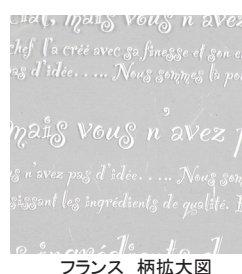 mais vous n'avez
chef l'a créé avec sa finesse et son
pas d'idée..... Nous sommes là
mais vous n'avez p
s n'avez pas d'idée..... Nous som
sissant les ingrédients de qualité.
フランス 柄拡大図